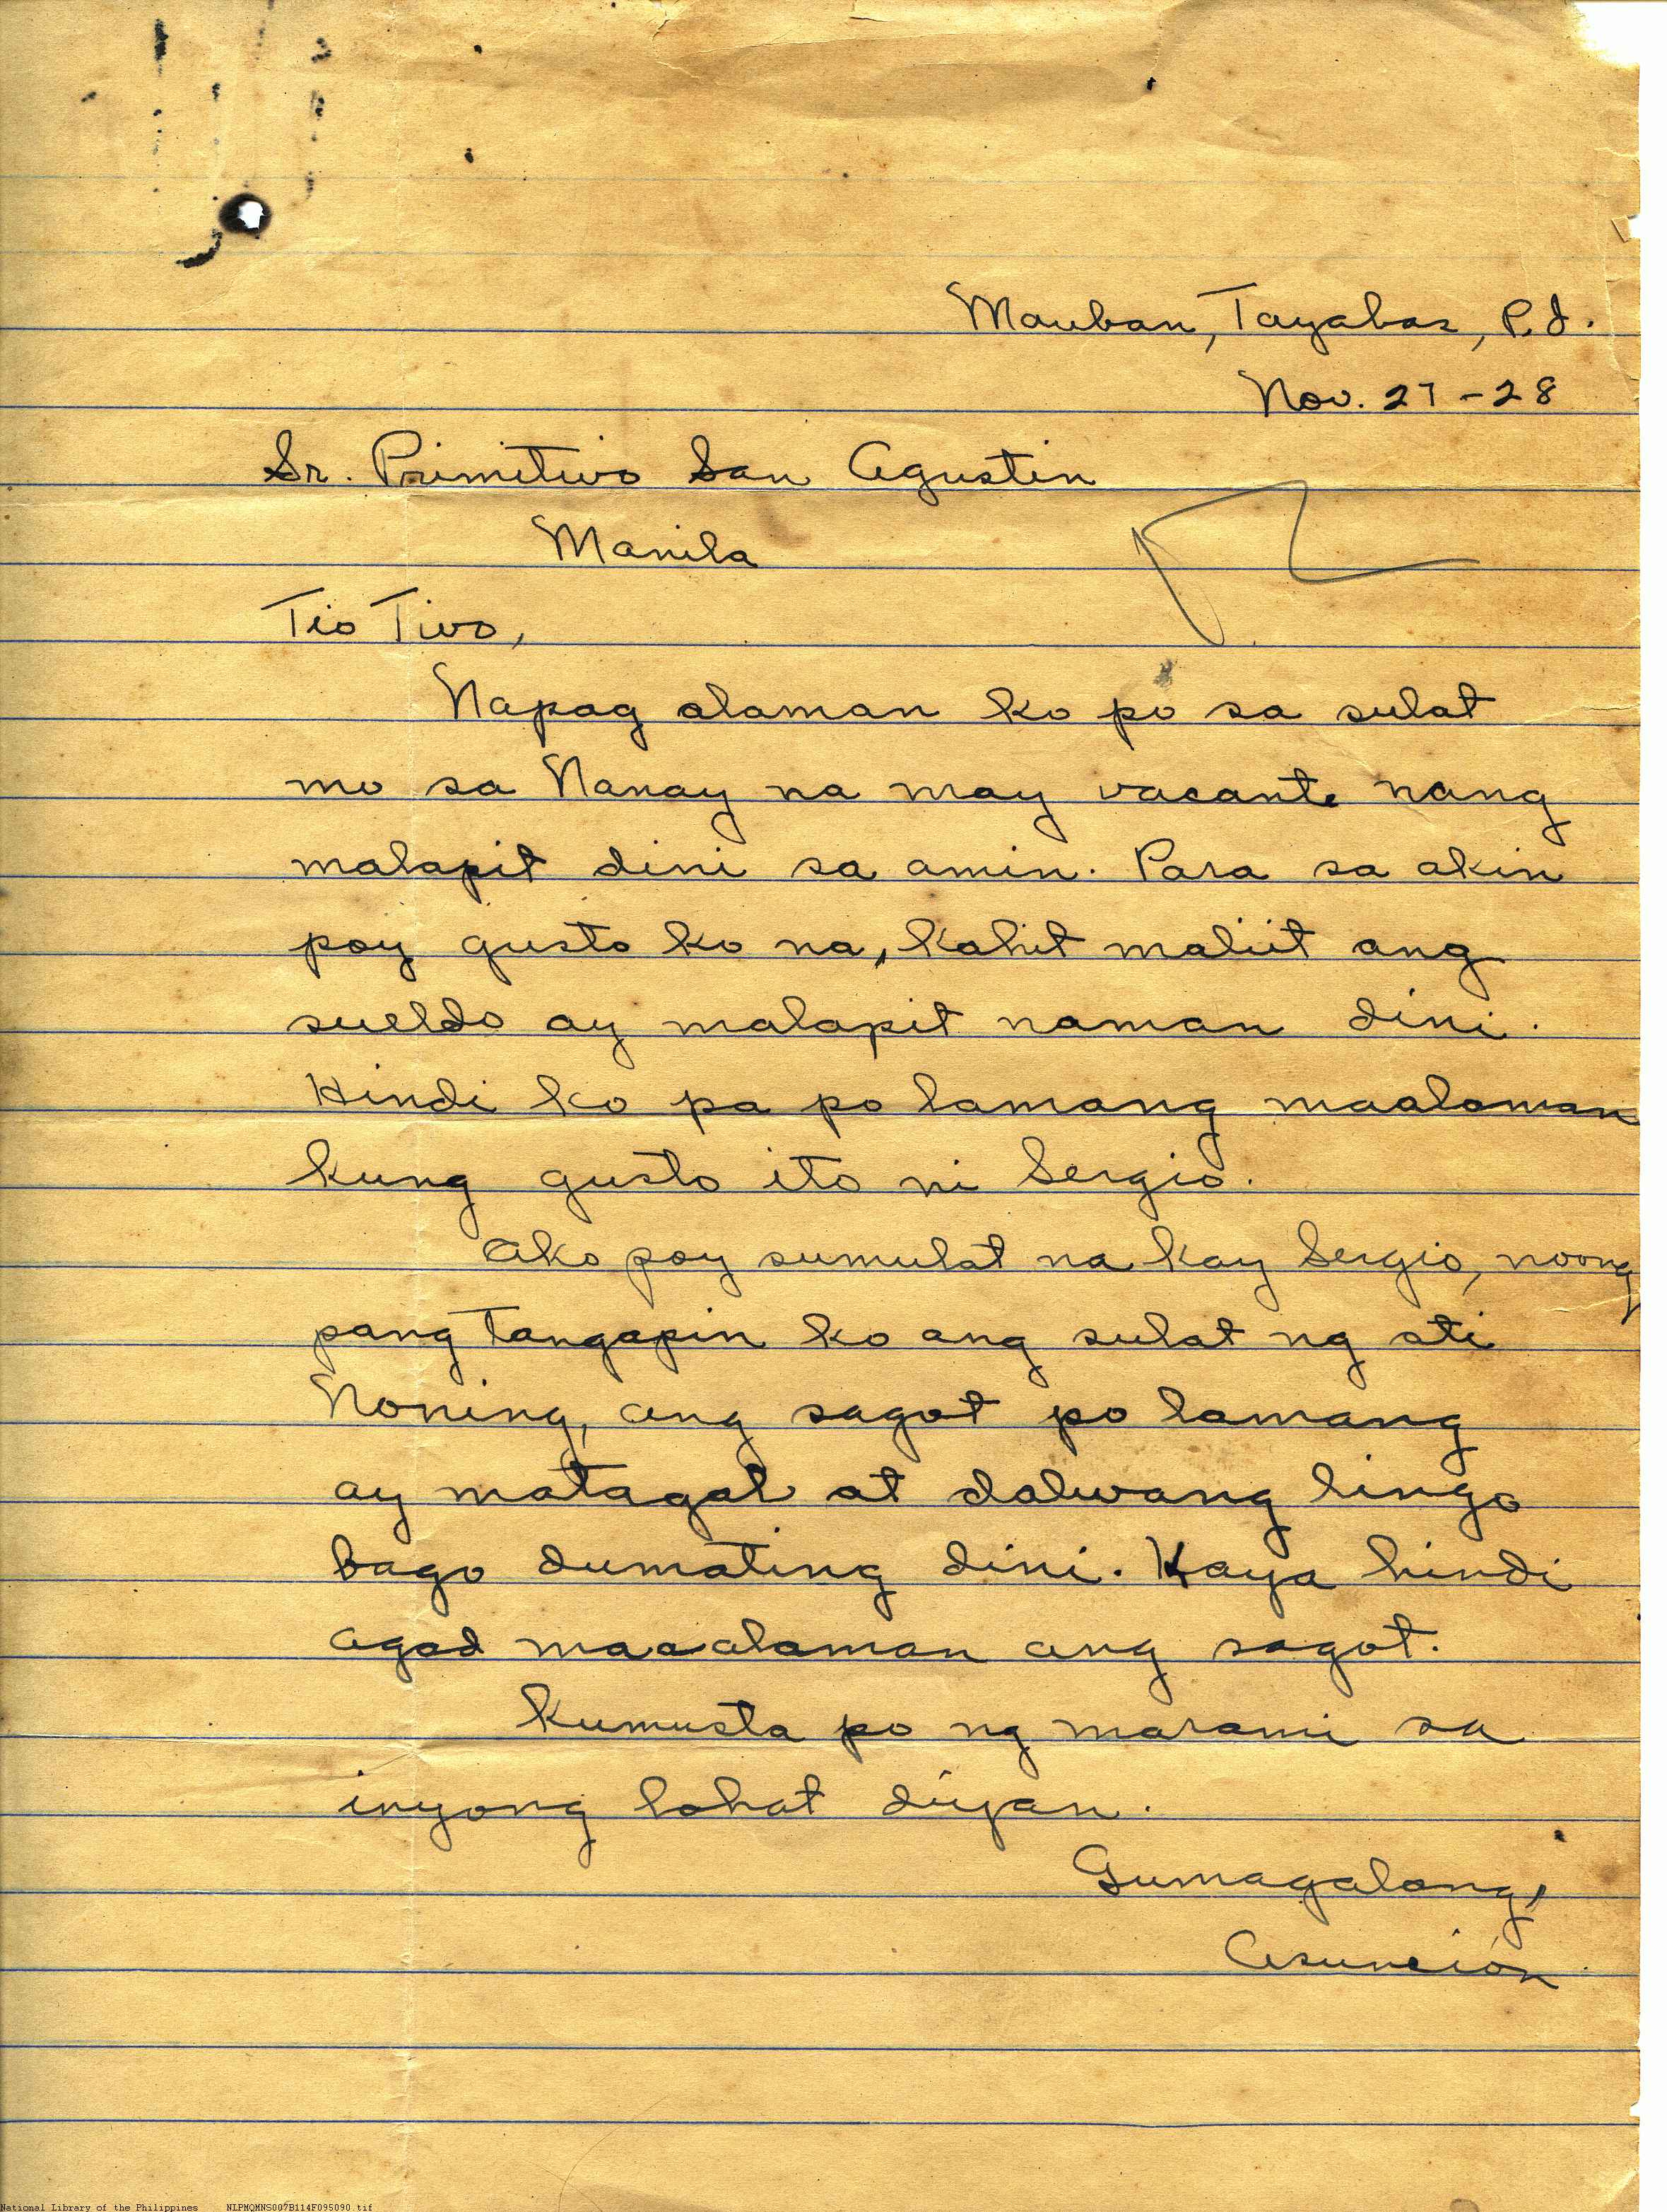 Mauban, Tayabas, P.I.
Nov. 27-28
Sr. Primitivo San Agustin
Manila
Tio Tivo,
Napag alaman ko po sa sulat
mo sa Nanay na may vacante nang
malapit dini sa amin. Para sa akin
poy gusto ko na, kahit maliit ang
sueldo ay malapit naman dini.
Hindi ko pa po lamang maalaman
kung gusto ito ni Sergio.
Ako poy sumulat na kay Sergio, noong
pang tangapin ko ang sulat ng ati
Noning, ang sagot po lamang
ay matagal at dalwang lingo
bago dumating dini. Kaya hindi
agad maaalaman ang sagot.
Kumusta po ng marami sa
inyong lahat diyan.
Gumagalang,
Asuncion
National Library of the Philippines NLPMQMNS007B114F095090.tif